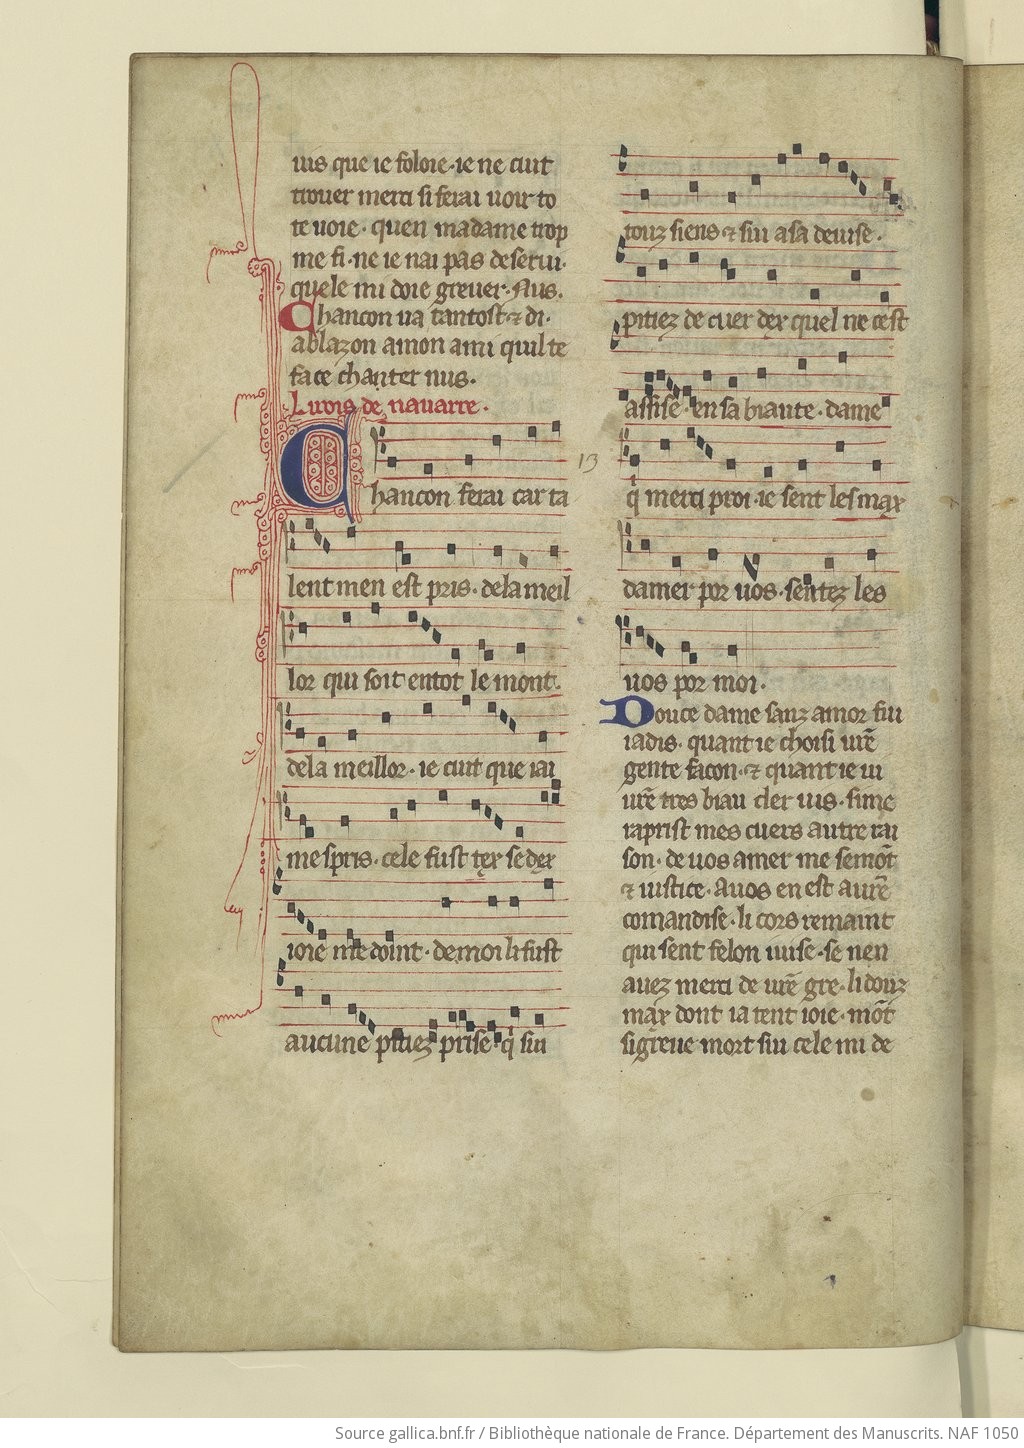 uis que ie foloie · ie ne cuit
trouer merci si ferai uoir to
te uoie · quen madame trop
me fi · ne ie nai pas deserui ·
quele mi doie greuer · Nus .
Chancon ua tantost ⁊ di ·
a blazon a mon ami quil te
face chanter nus .
Li rois de nauarre .
Chancon ferai car ta
lent men est pris · de la meil
lor qui soit en tot le mont .
de la meillor · ie cuit que iai
mespris · cele fust tex se dex
ioie me doint · de moi li fust
aucune pitiez prise · q̇ sui
touz siens ⁊ sui a sa deuise ·
pitiez de cuer dex quel ne cest
assise · en sa biaute · dame
q̇ merci proi · ie sent les max
damer por uos · sentez les
uos por moi .
Douce dame sanz amor fui
iadis · quant ie choisi ur̄e
gente facon · ⁊ quant ie ui
ur̄e tres biau cler uis · si me
raprist mes cuers autre rai
son · de uos amer me semōt
⁊ iustice · a uos en est a ur̄e
comandise · li cors remaint
qui sent felon iuise · se nen
auez merci de ur̄e gre · li douz
max dont iatent ioie · mōt
si greue mort sui cele mi de
13
Source gallica.bnf.fr / Bibliothèque nationale de France. Département des Manuscrits. NAF 1050